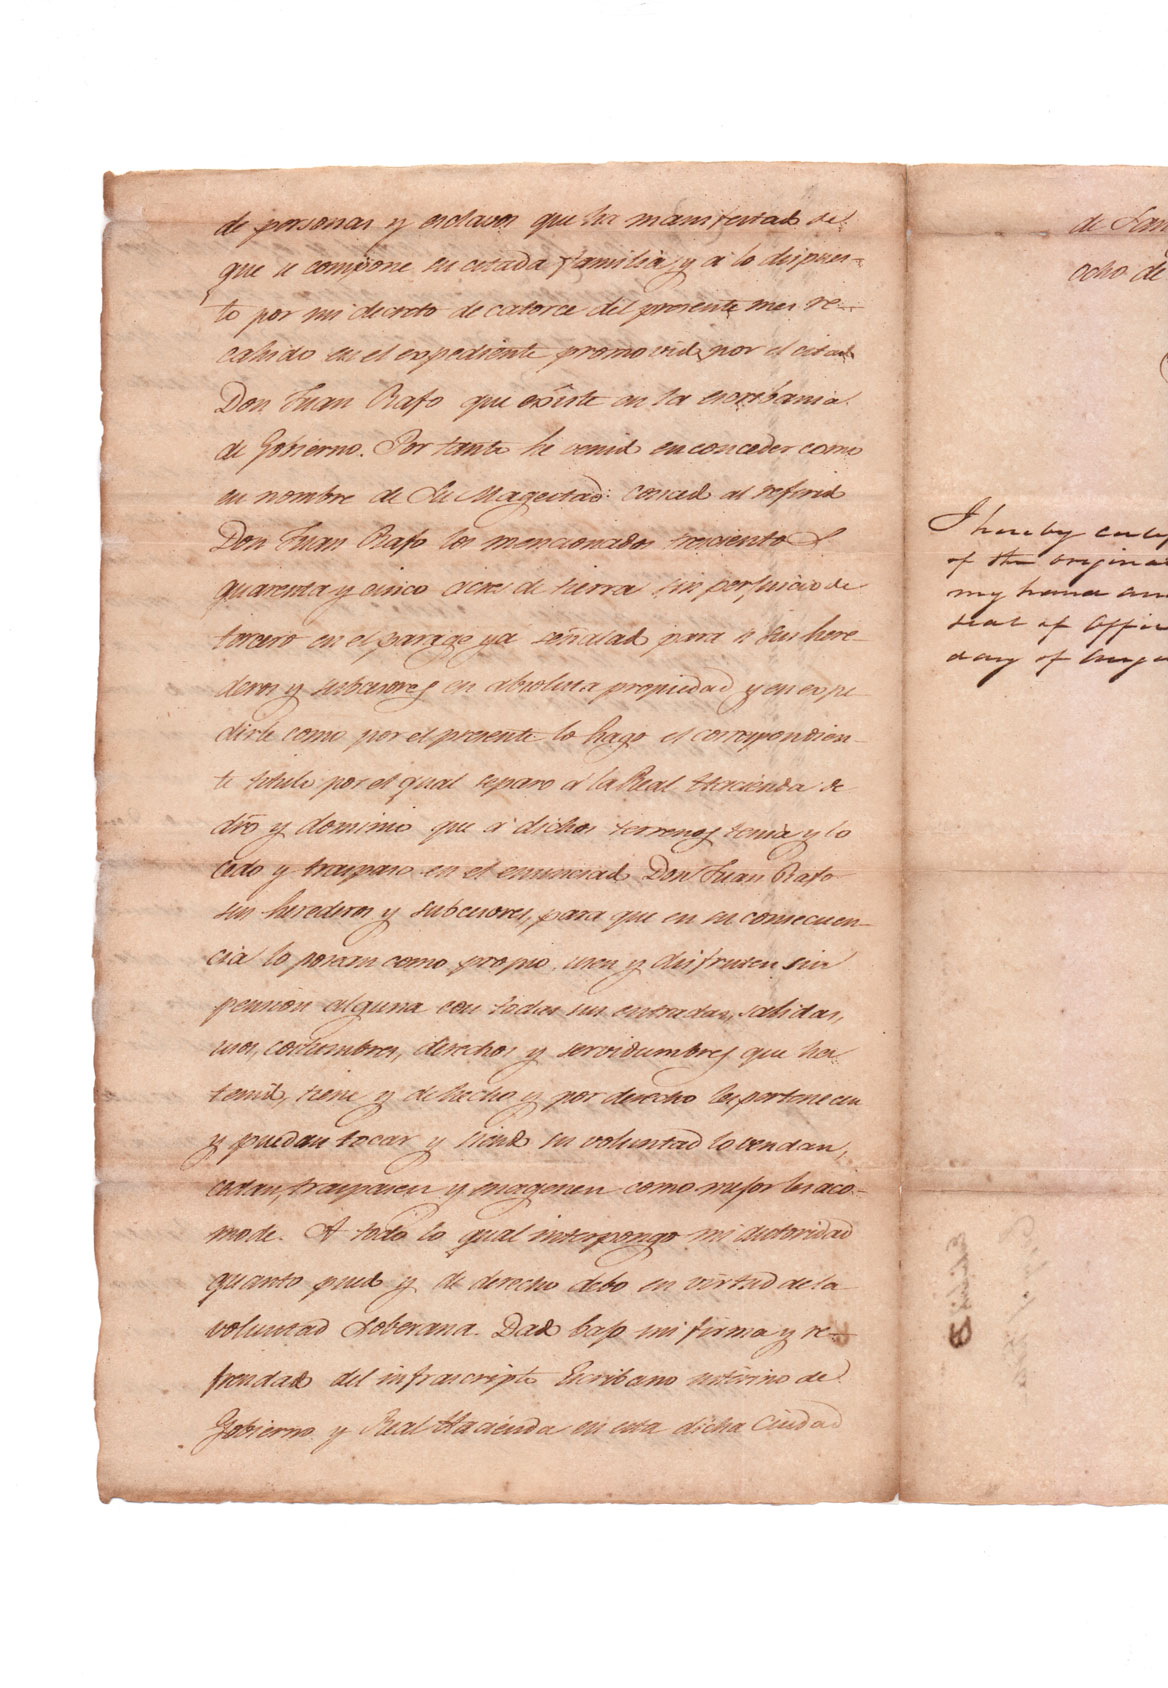 de personas y esclavos que ha manifestado de
que se compone su citada familia, y á lo dispues-
to por mi decreto de catorce del presente mes re-
cahido en el expediente promovido por el citado
Don Juan Rafo que existe en la escribania
de Gobierno. Por tanto he venido en conceder como
en nombre de Su Magestad: concedo al referido
Don Juan Rafo los mencionados trescientos
quarenta y cinco acres de tierra sin perjuicio de
tercero en el parage ya señalado para si sus here
deros y subcesores en absoluta propiedad y en expe
dirle como por el presente lo hago el correspondien-
te titulo por el qual separo á la Real Hacienda de
dro y dominio que á dichos terrenos tenia y lo
cedo y traspaso en el enunciado Don Juan Rafo
sus herederos y subcesores, para que en su consecuen-
cia lo posean como propio, usen y disfruten sin
pension alguna con todas sus entradas, salidas,
usos, costumbres, derechos y servidumbres que ha
tenido, tiene y de hecho y por derecho les pertenecen
y puedan tocar y siendo su voluntad lo vendan,
cedan, traspasen y enagenen como mejor les aco-
mode. A todo lo qual interpongo mi autoridad
quanto puedo y de derecho debo en virtud de la
voluntad Soberana. Dado bajo mi firma y re-
frendado del infrascripto Escribano interino de
Gobierno y Real Hacienda en esta dicha Ciudad
de San
ocho de
I hereby
of the original
my hand
seal of Offi
day of